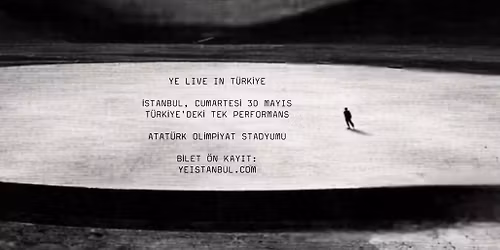 YE LIVE IN TÜRKİYE
İSTANBUL, CUMARTESİ 30 MAYIS
TÜRKİYE'DEKİ TEK PERFORMANS
ATATÜRK OLİMPİYAT STADYUMU
BİLET ÖN KAYIT:
YEISTANBUL.COM